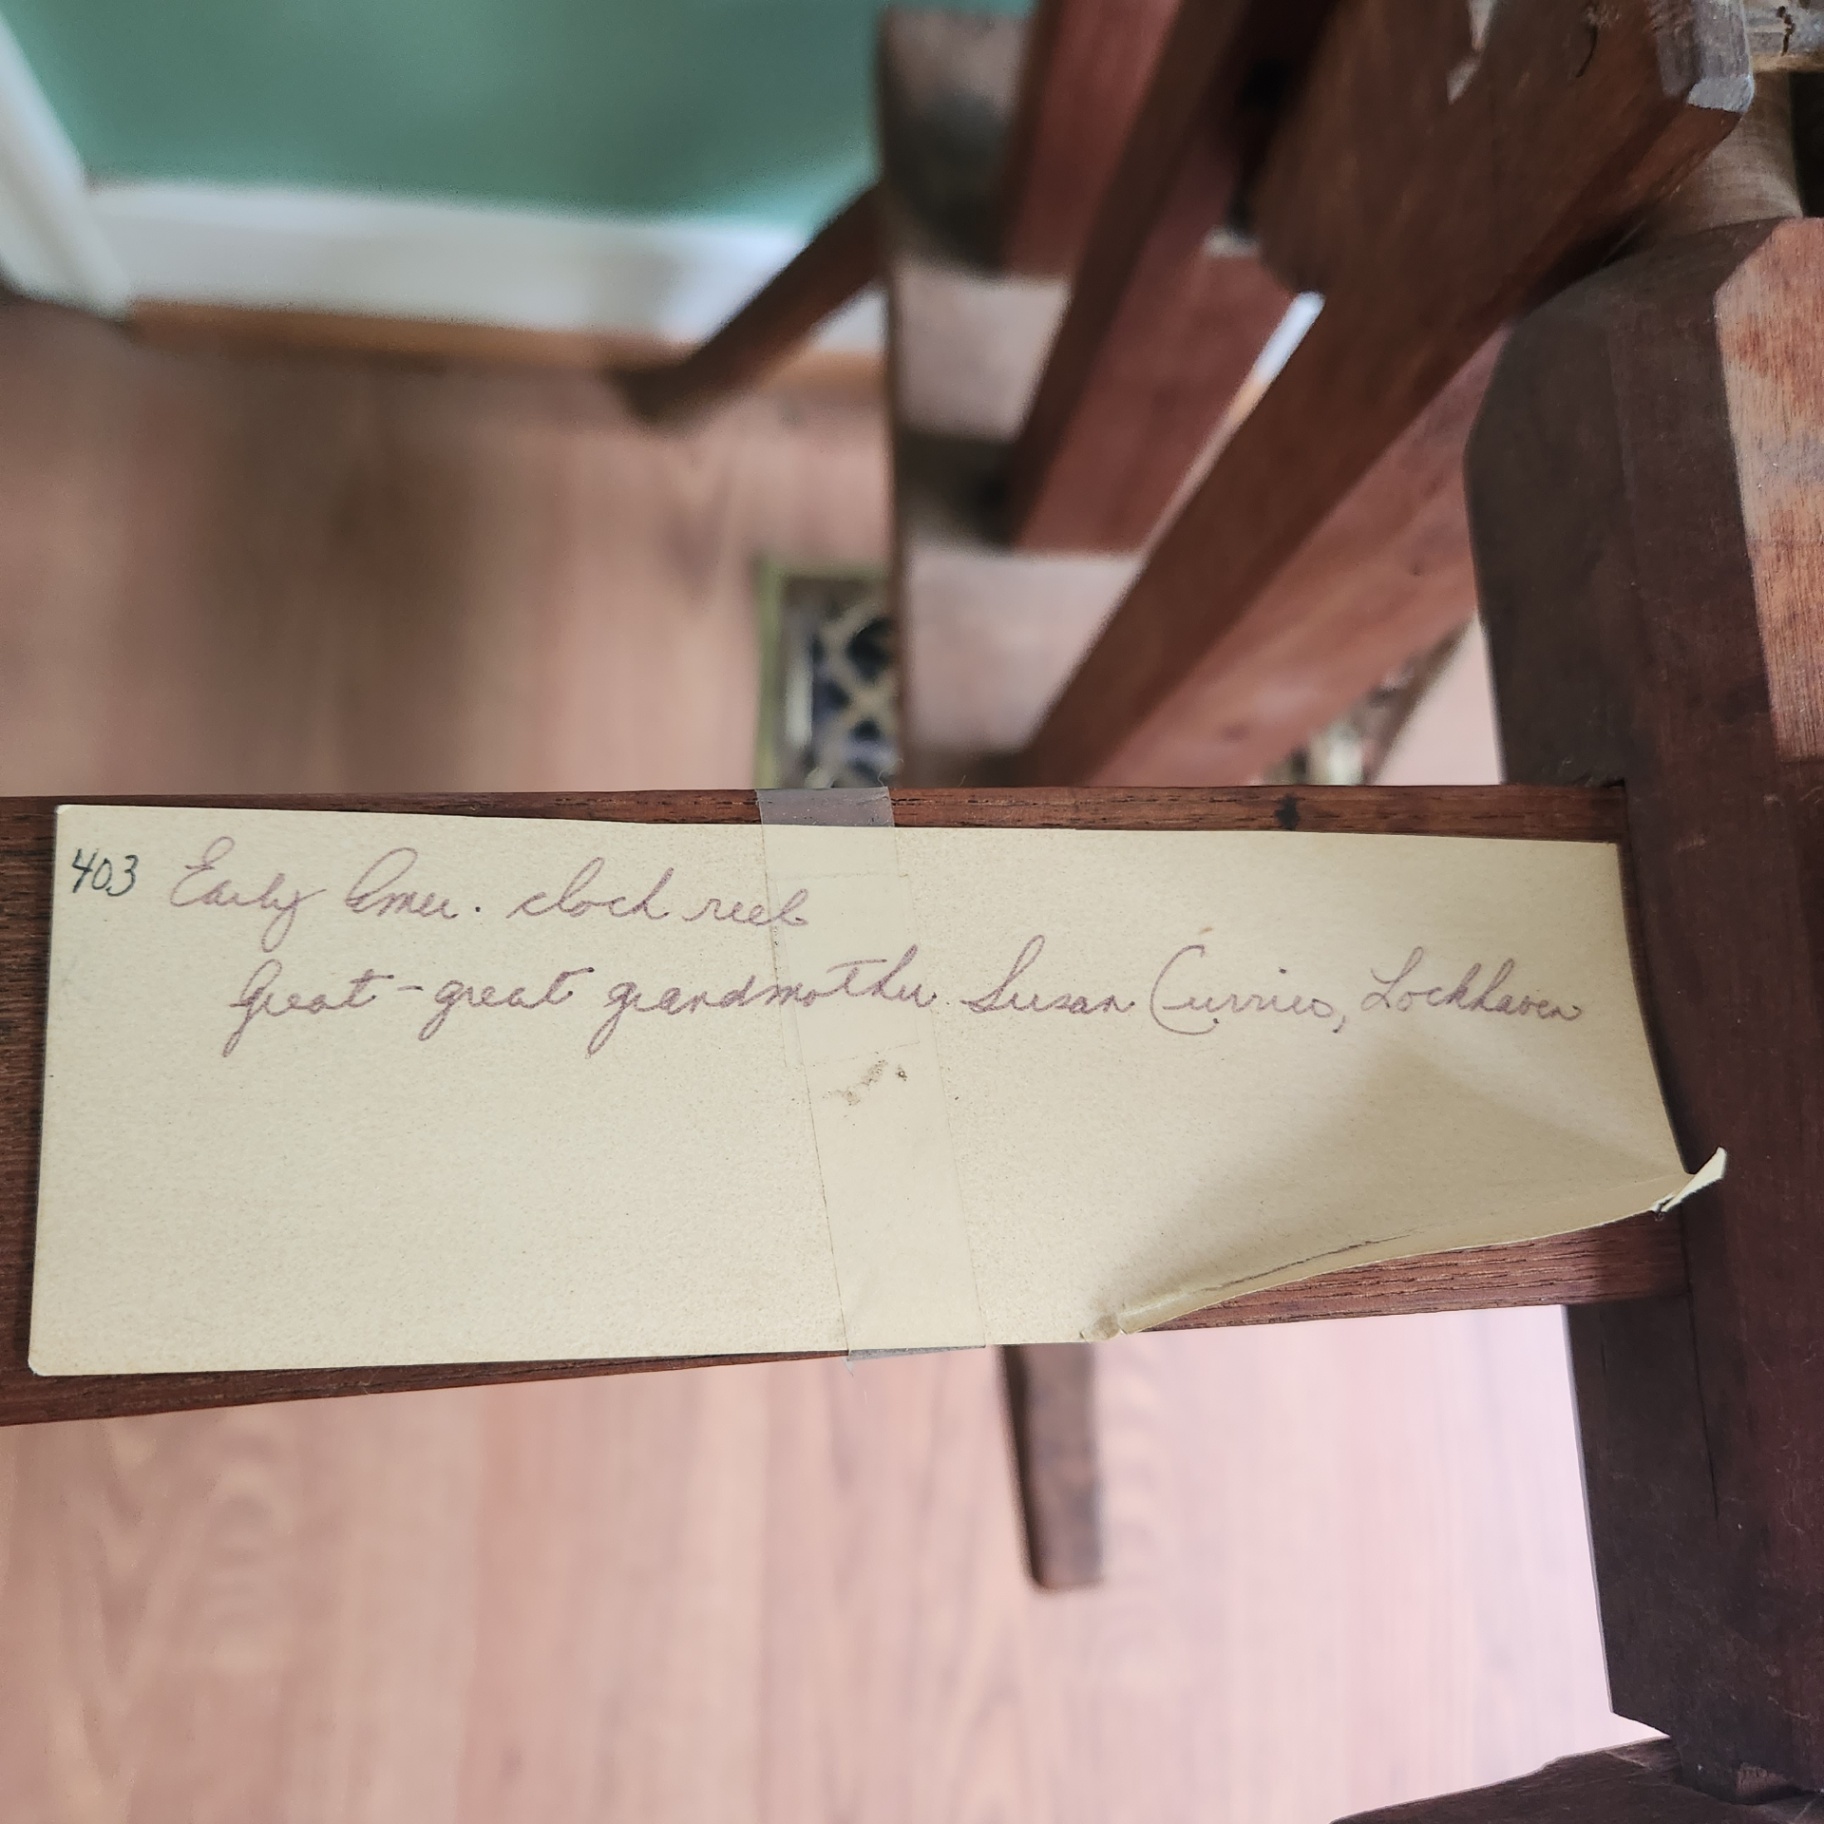 403 Early Amer. clock reel
Great-great grandmother Susan Curries, Lockhaven